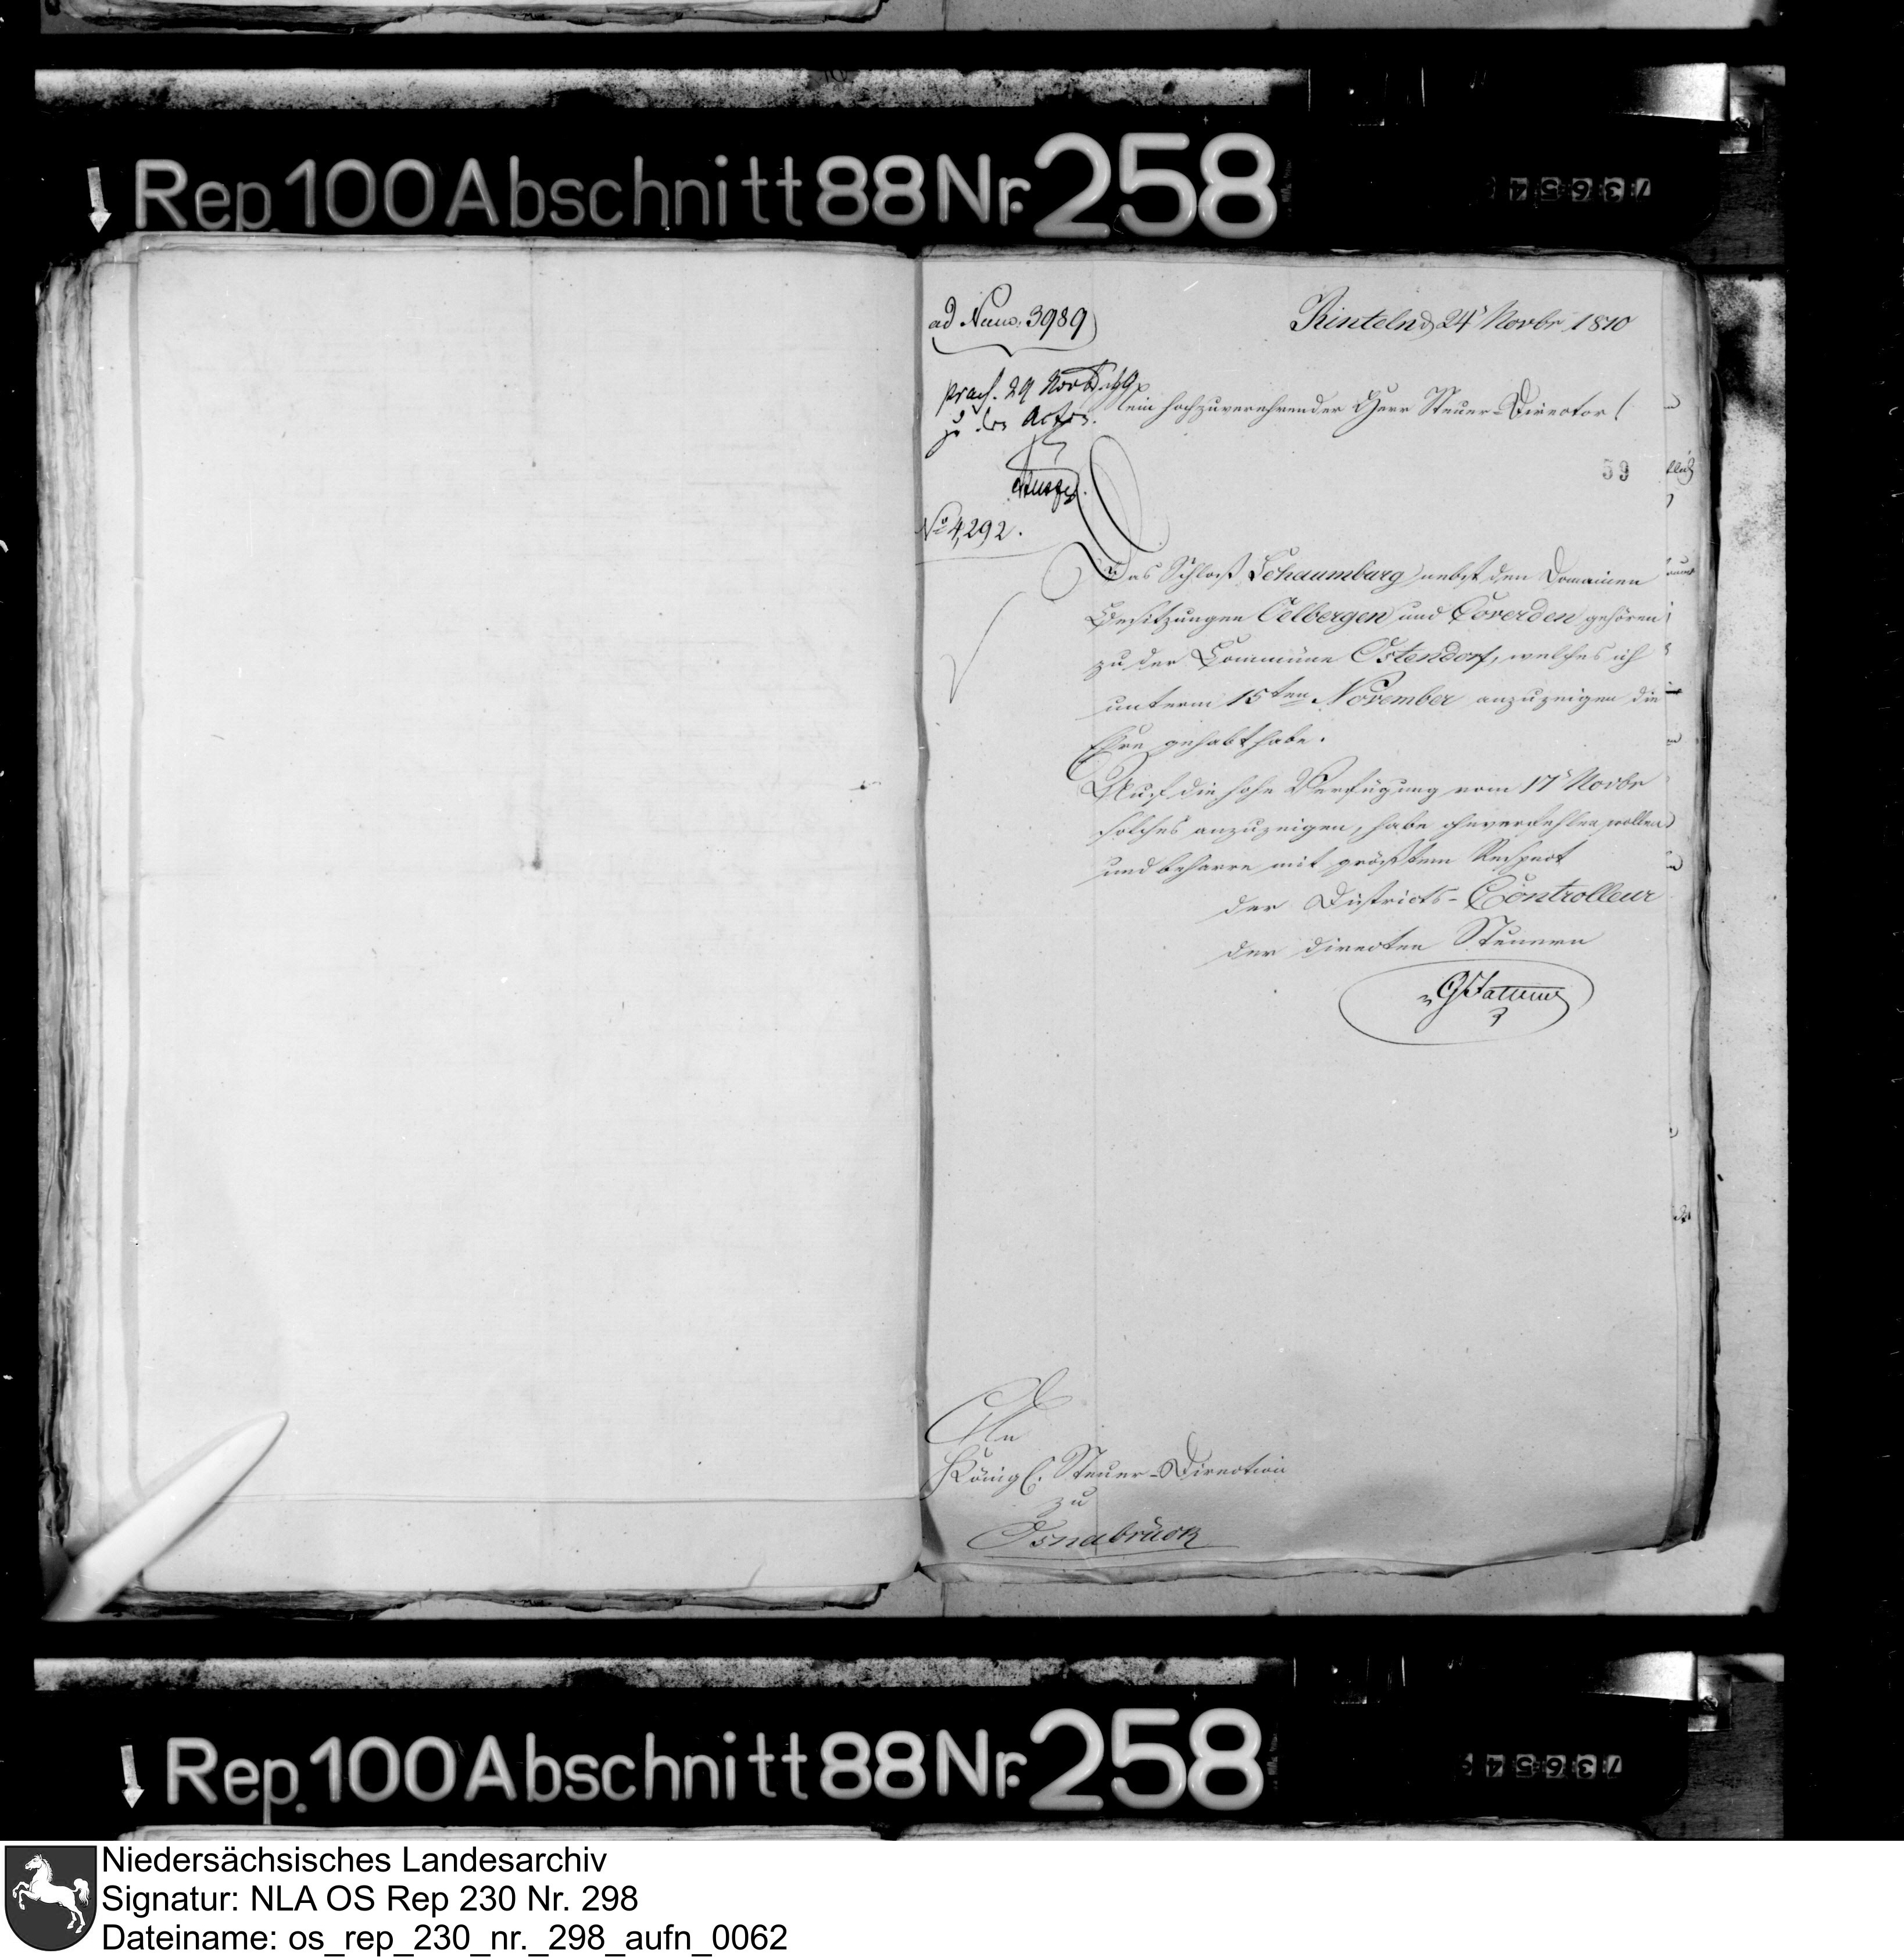 Rep. 100 Abschnitt 88 Nr. 258
73654
ad Num: 3989
Rinteln d 24' Novbr 1810
praes. 29 Novb
zu den Acten.
Mein hochzuverehrender Herr Steuer-Director!
59
No 4,292.
Das Schloß Schaumburg nebst den Domainen
Besitzungen Oelbergen und Coverden gehören
zu der Commüne Ostendorf, welches ich
unterm 15ten November anzuzeigen die
Ehre gehabt habe.
Auf die hohe Verfügung vom 17' Novbr
solches anzuzeigen, habe ohnverfehlen wollen
und beharre mit größtem Respect
der Districts-Controlleur
der directen Steuern
An
Königl. Steuer-Direction
zu
Osnabrück
Rep. 100 Abschnitt 88 Nr. 258
73654
Niedersächsisches Landesarchiv
Signatur: NLA OS Rep 230 Nr. 298
Dateiname: os_rep_230_nr._298_aufn_0062